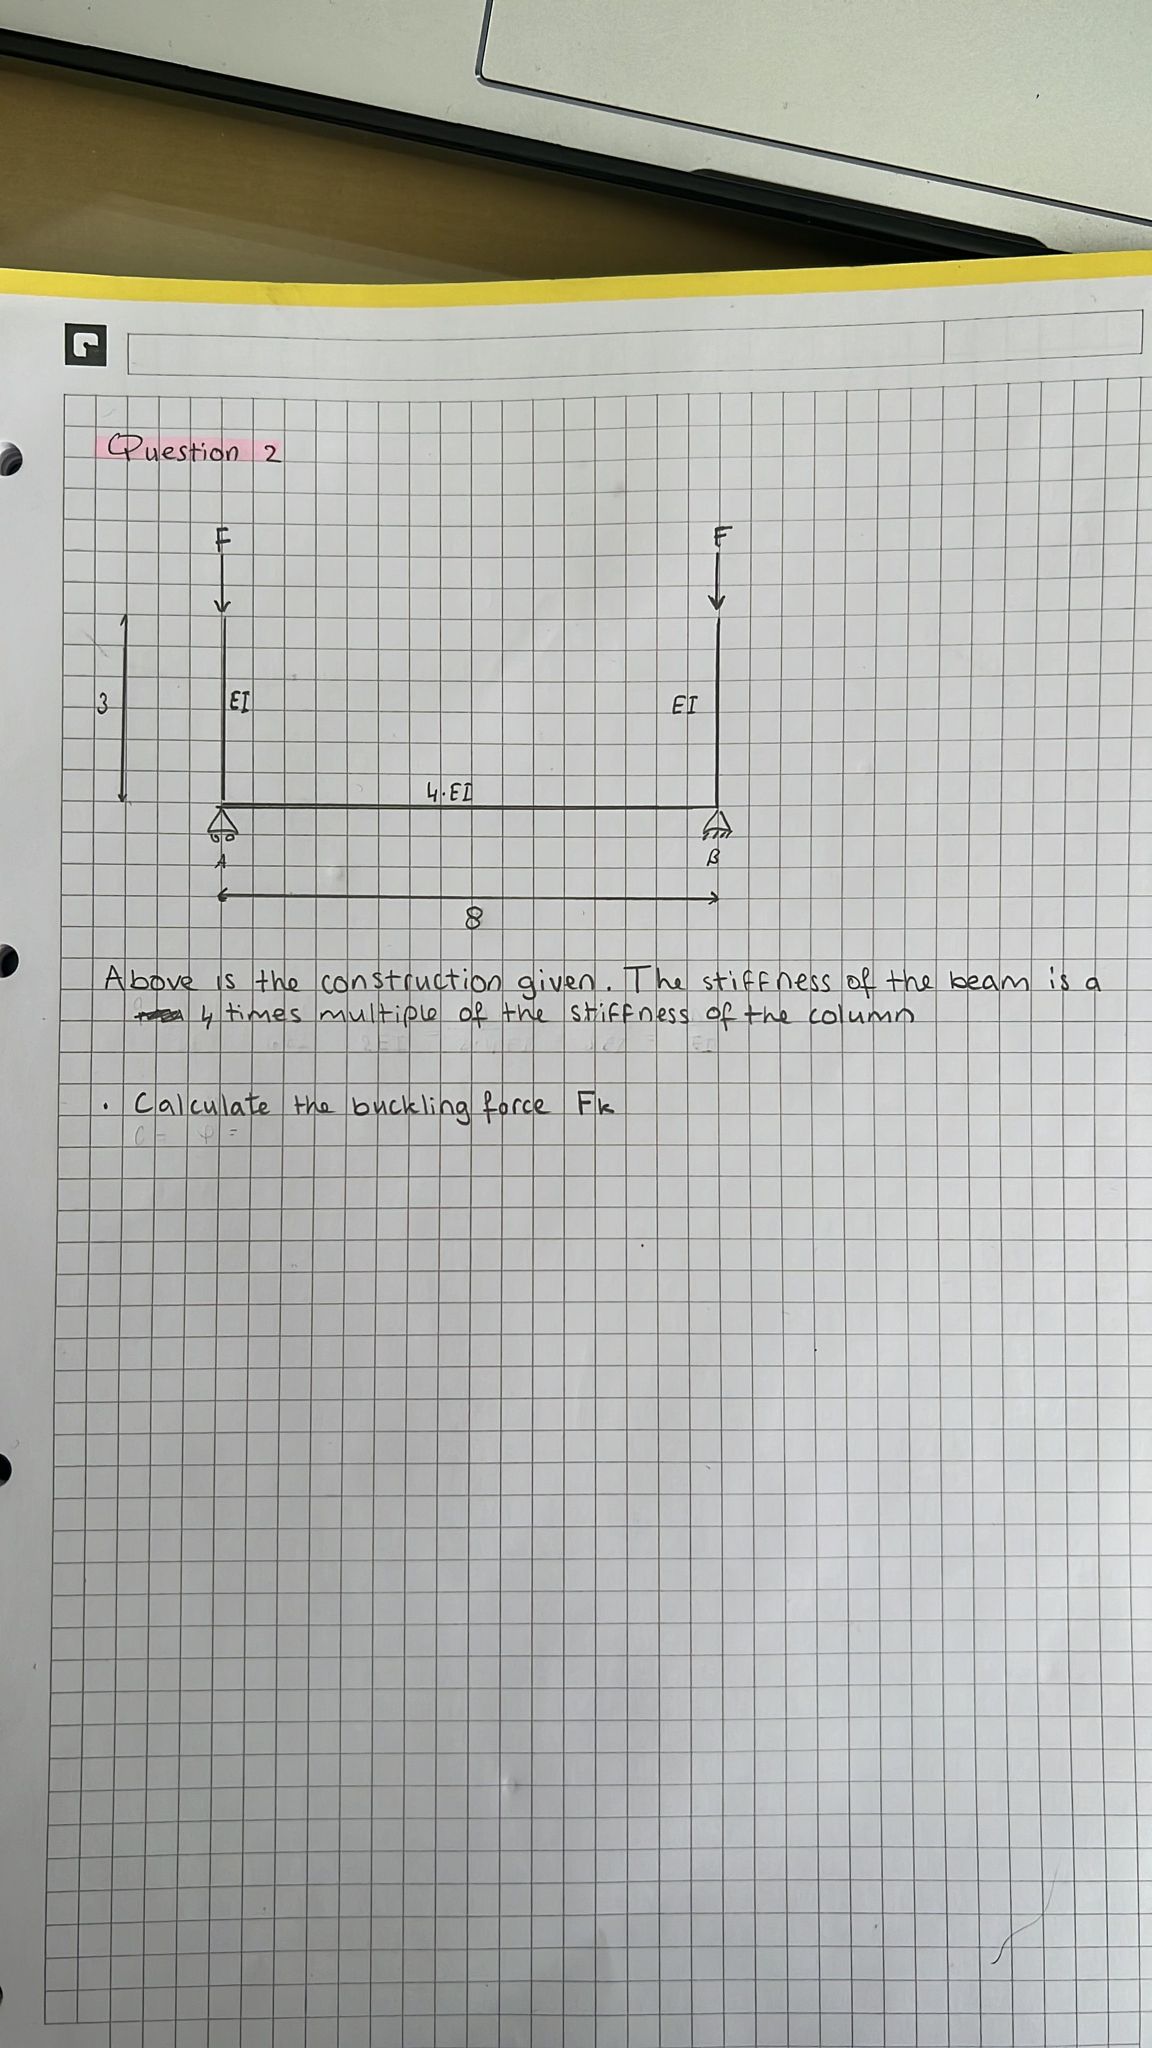 Question 2
F
F
3
EI
EI
4·EI
A
B
8
Above is the construction given. The stiffness of the beam is a
4 times multiple of the stiffness of the column
· Calculate the buckling force Fk
C = φ =